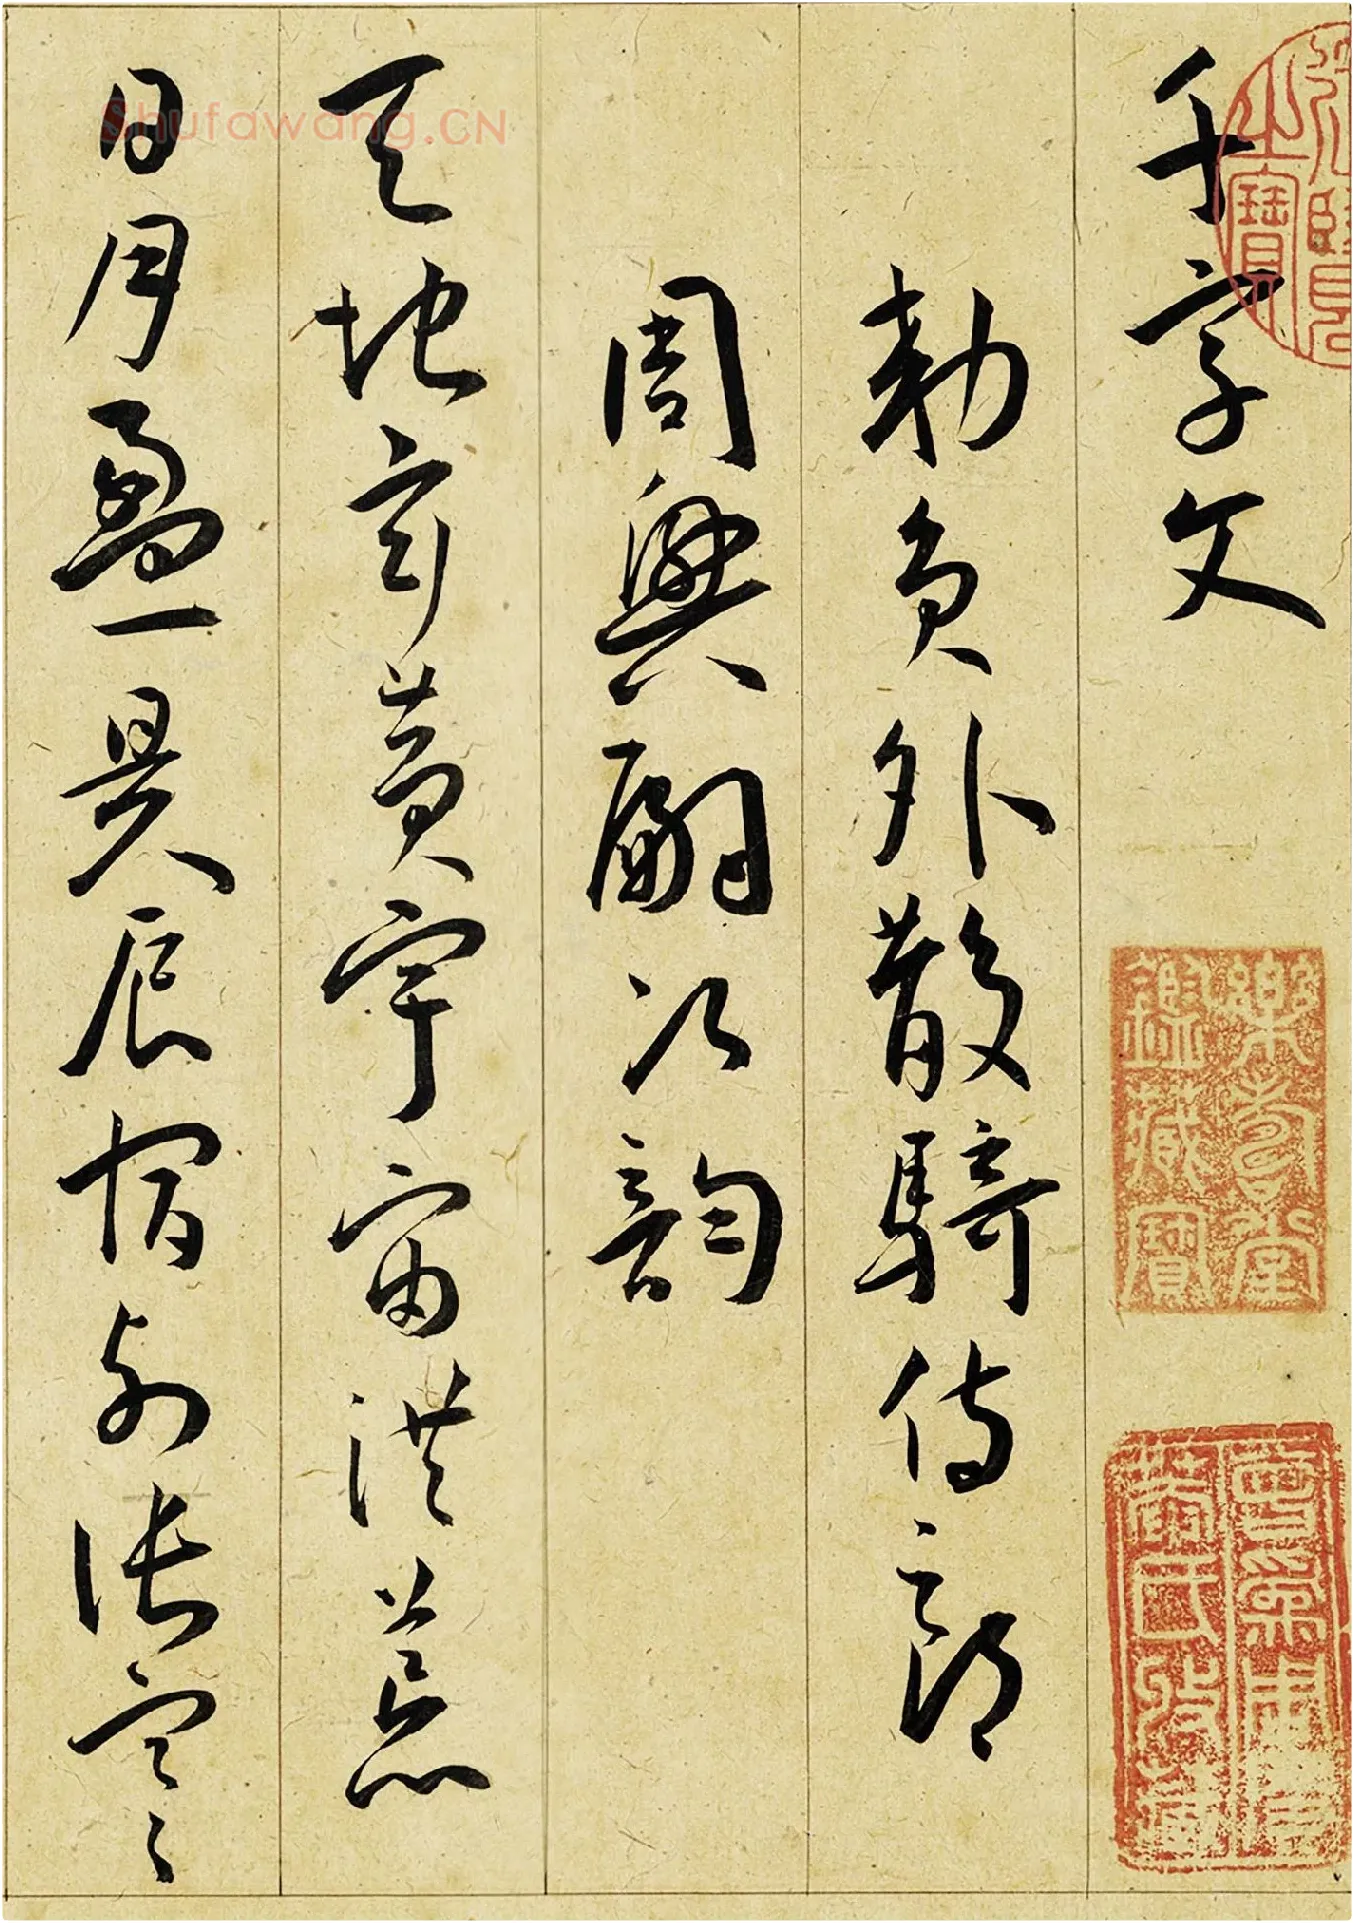 千字文
勅員外散騎侍郎
周興嗣次韻
天地玄黄宇宙洪荒
日月盈昃辰宿列張寒
之寶
樂壽堂鑑藏寶
Shufawang.CN